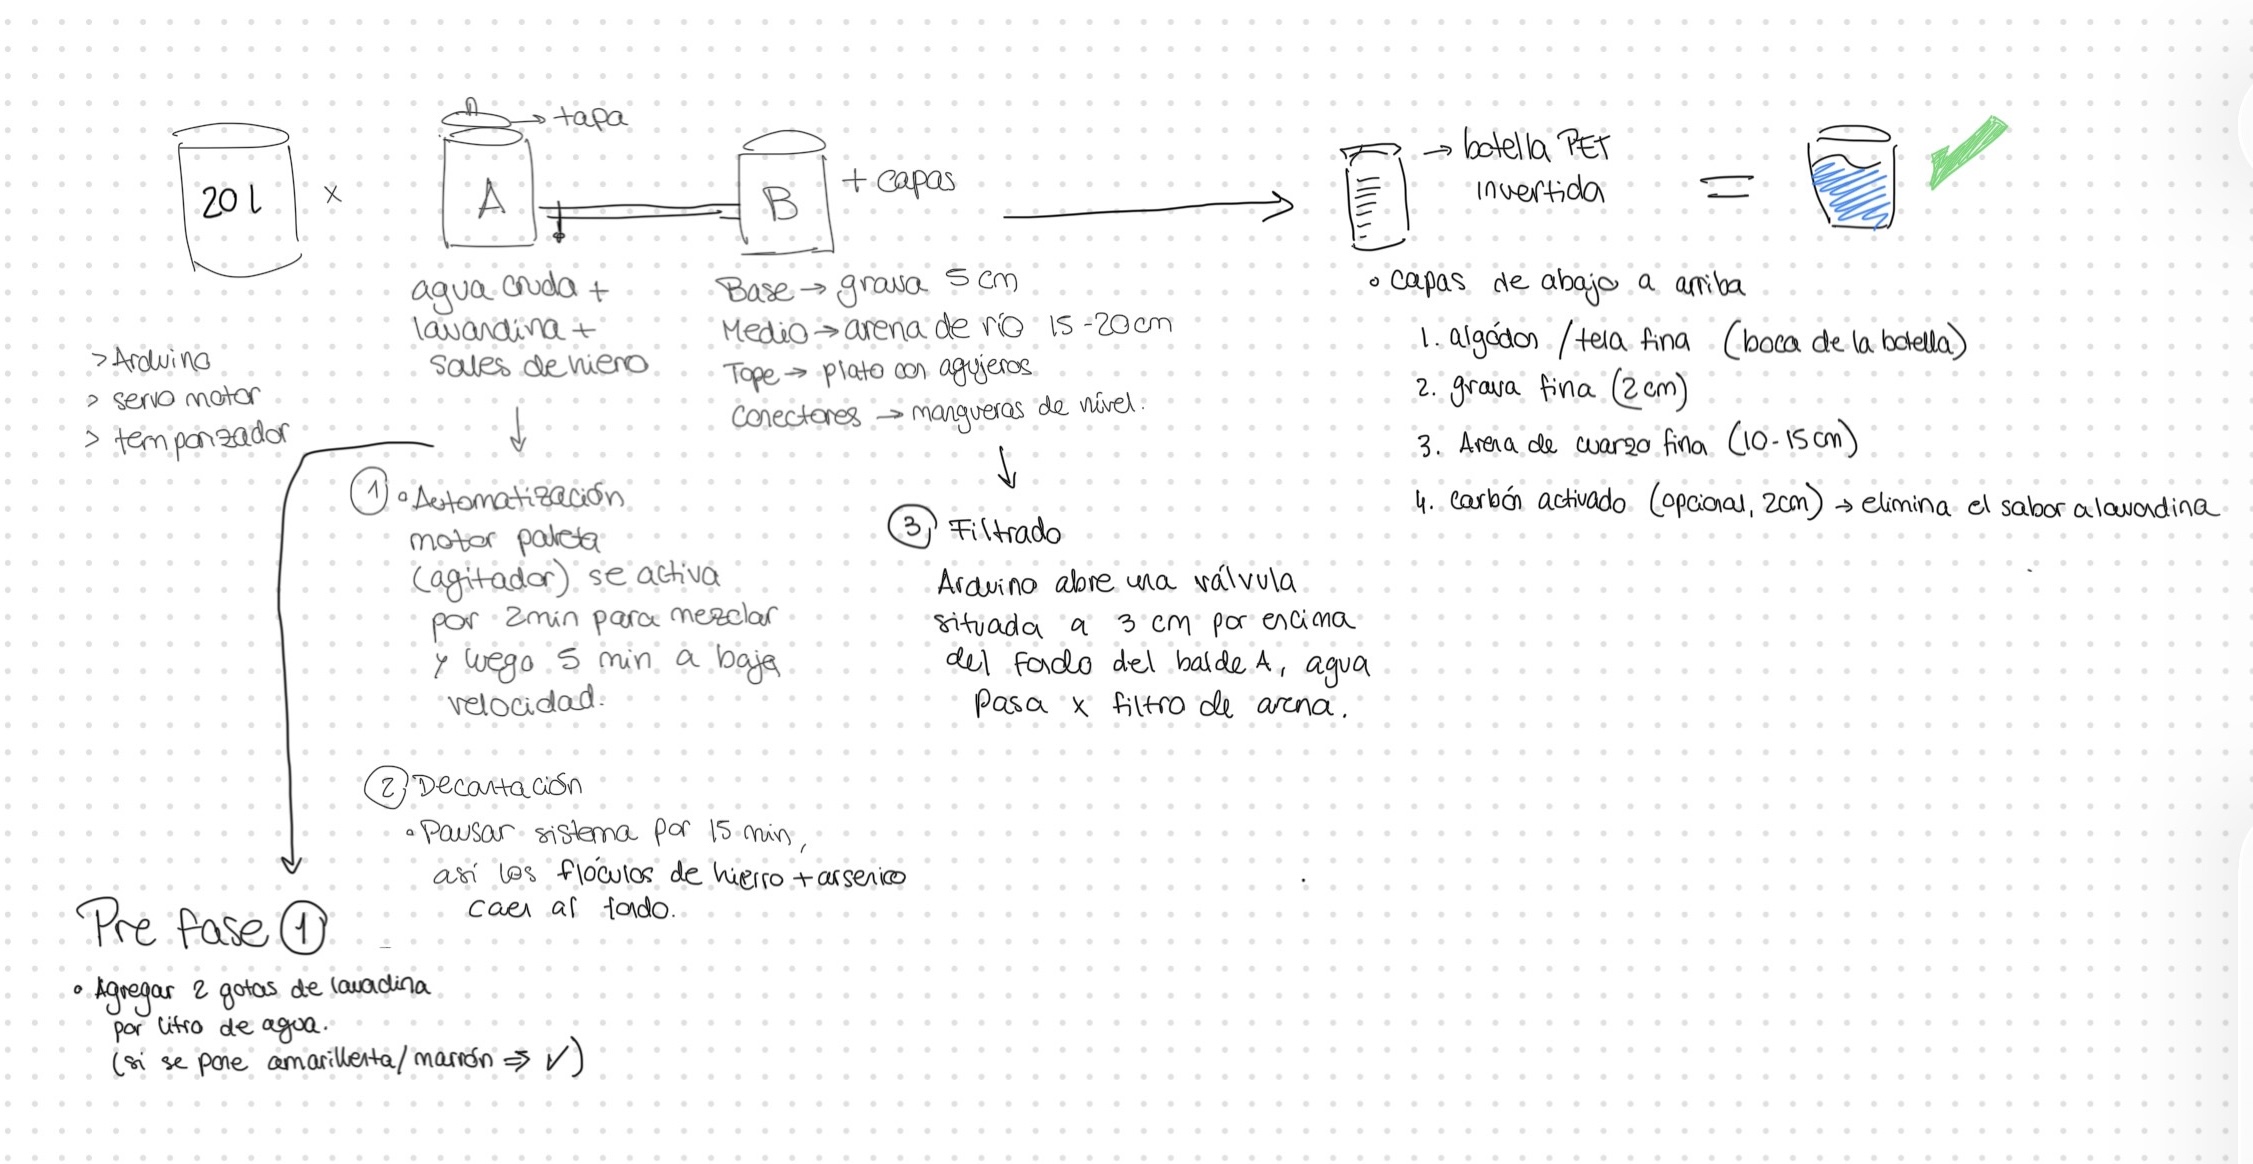 20 l
x
A
→ tapa
B
+ capas
→ botella PET
invertida
=
agua cruda +
lavandina +
sales de hierro
> Arduino
> servo motor
> temporizador
Base → grava 5 cm
Medio → arena de río 15-20cm
Tope → plato con agujeros
Conectores → mangueras de nivel.
• capas de abajo a arriba
1. algódon / tela fina (boca de la botella)
2. grava fina (2 cm)
3. Arena de cuarzo fina (10-15 cm)
4. Carbón activado (opcional, 2cm) → elimina el sabor a lavandina
① • Automatización
motor paleta
(agitador) se activa
por 2min para mezclar
y luego 5 min a baja
velocidad.
② Decantación
• Pausar sistema por 15 min,
así los flóculos de hierro + arsenico
caen al fondo.
③ Filtrado
Arduino abre una válvula
situada a 3 cm por encima
del fondo del balde A, agua
pasa x filtro de arena.
Pre fase ①
• Agregar 2 gotas de lavadina
por litro de agua.
(si se pone amarillenta/marrón ⇒ ✓)